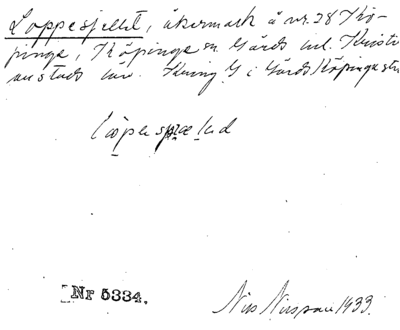 Loppesjellet, åkermark å nr. 28 Kö-
pinge, Köpinge sn. Gärds hd. Kristi-
anstads län. Kring G i Gärds Köpinge stn
Nr 5334.
Nils Nilsson 1933.